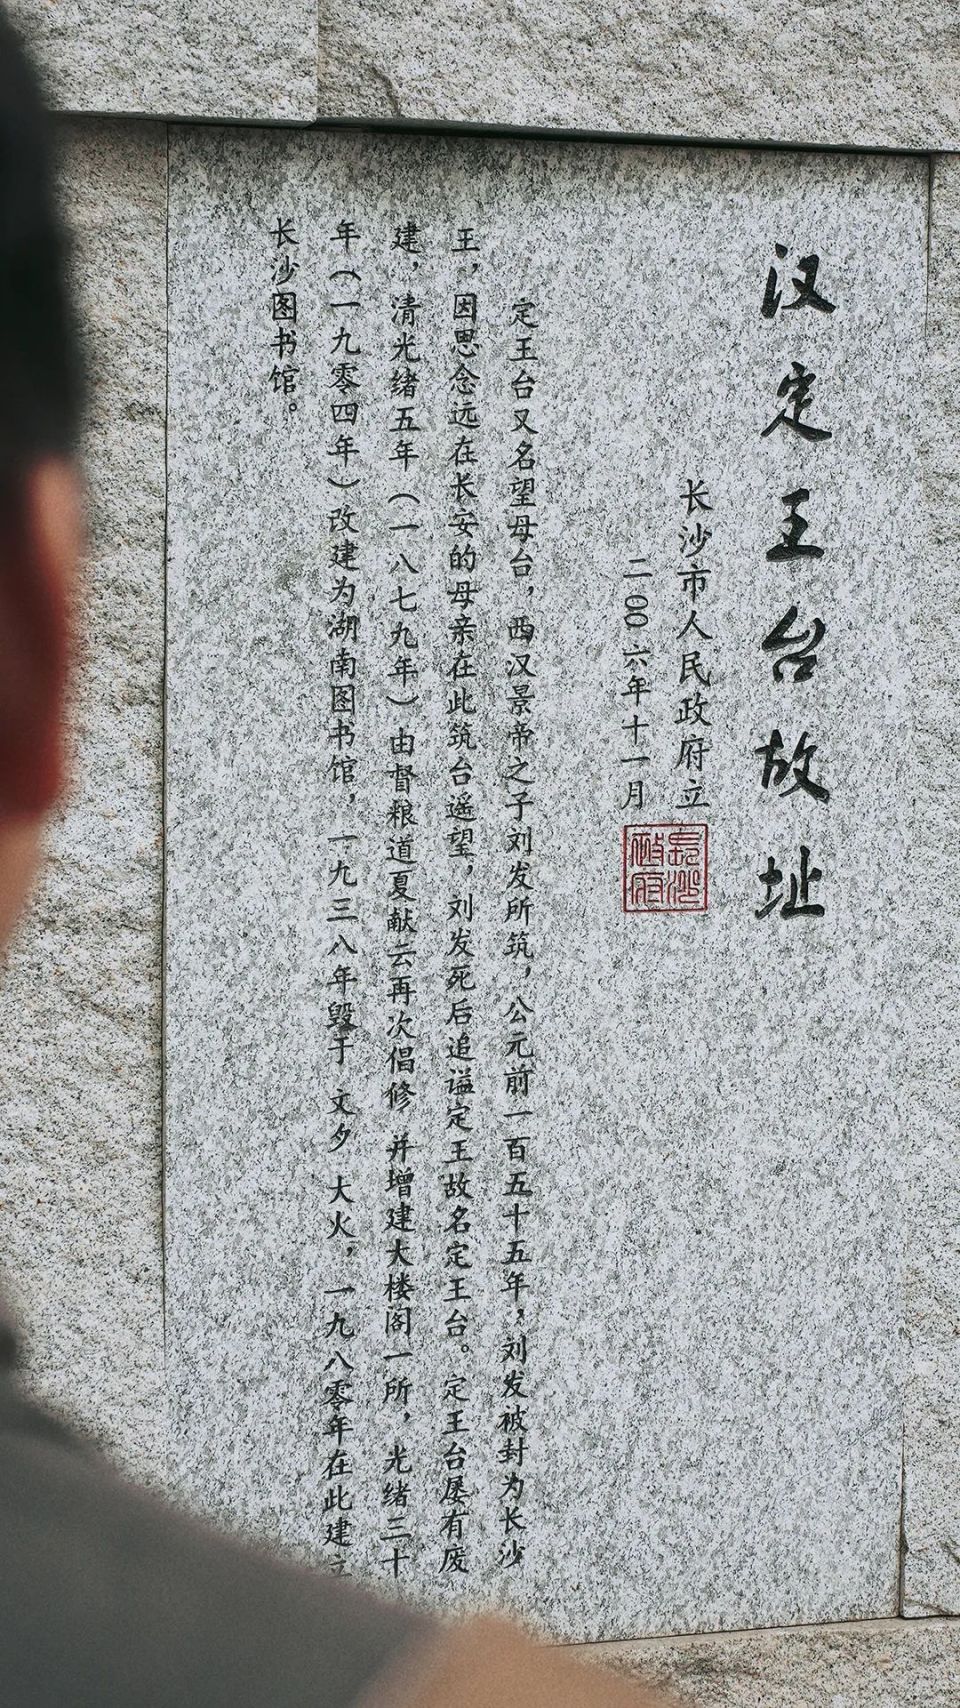 汉定王台故址
长沙市人民政府立
二〇〇六年十一月
长沙政府
定王台又名望母台，西汉景帝之子刘发所筑，公元前一百五十五年，刘发被封为长沙
王，因思念远在长安的母亲在此筑台遥望，刘发死后追谥定王故名定王台。定王台屡有废
建，清光绪五年（一八七九年）由督粮道夏献云再次倡修 并增建大楼阁一所，光绪三十
年（一九零四年）改建为湖南图书馆，一九三八年毁于 文夕 大火，一九八零年在此建立
长沙图书馆。